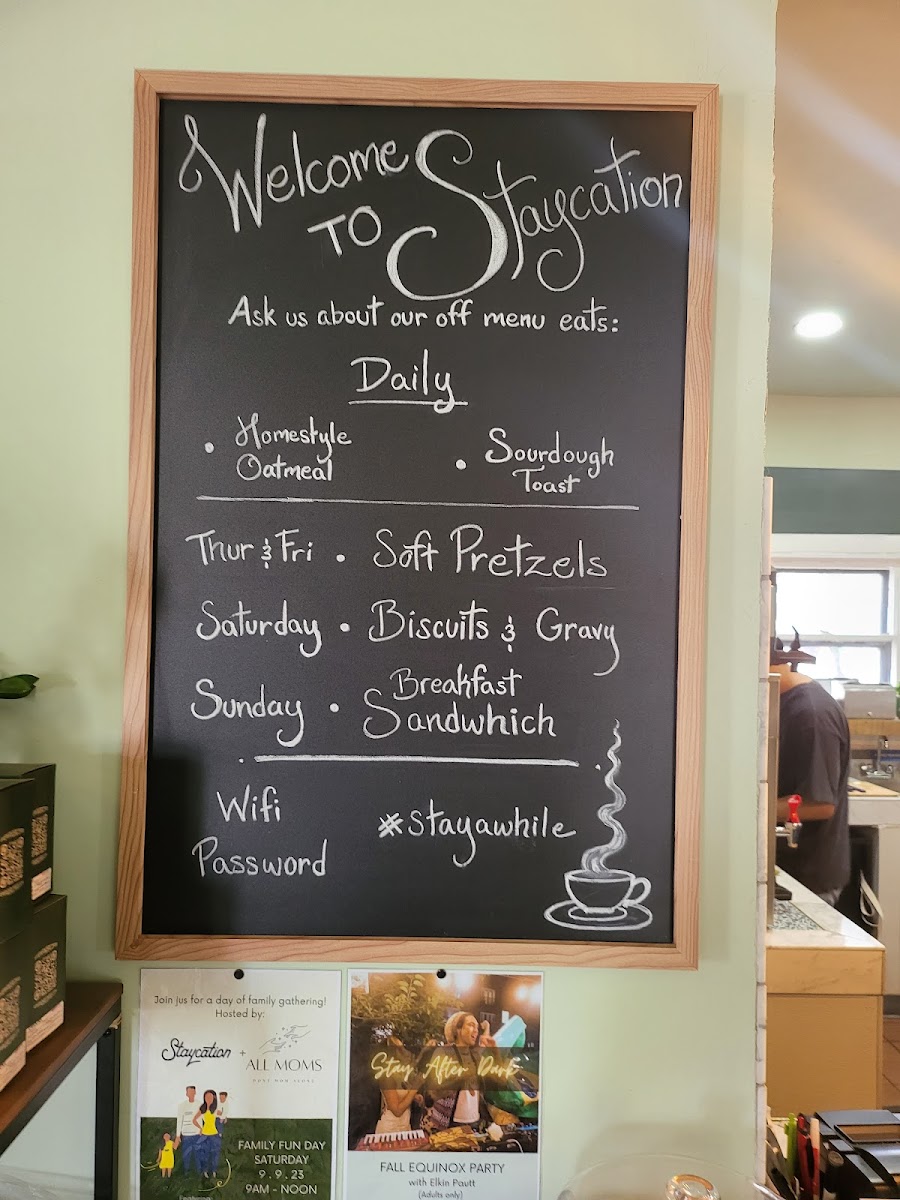 Welcome
TO Staycation
Ask us about our off menu eats:
Daily
• Homestyle
Oatmeal
• Sourdough
Toast
Thur & Fri • Soft Pretzels
Saturday • Biscuits & Gravy
Sunday • Breakfast
Sandwhich
Wifi
Password
#stayawhile
Join jus for a day of family gathering!
Hosted by:
Staycation + ALL MOMS
FAMILY FUN DAY
SATURDAY
9.9.23
9AM - NOON
Stay After Dark
FALL EQUINOX PARTY
with Elkin Pautt
(Adults only)